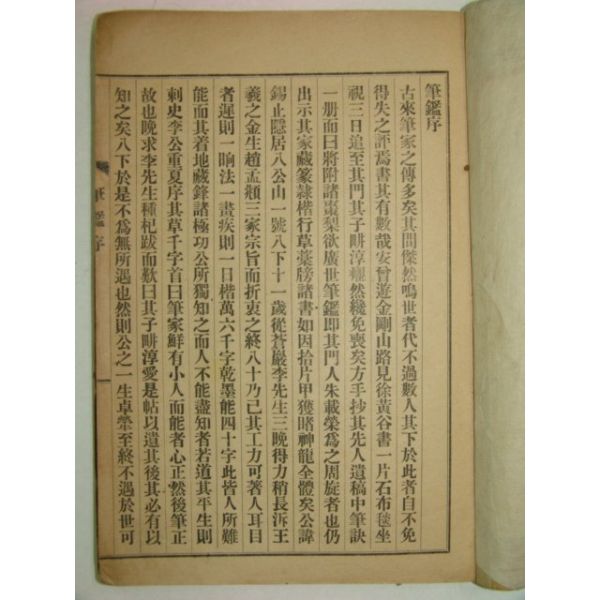 筆鑑序
古來筆家之傳多矣其間傑然鳴世者代不過數人其下於此者自不免
得失之評焉書其有數哉安曾遊金剛山路見徐黃谷書一片石布毯坐
視三日追至其門其子畊淳耀然纔免喪矣方手抄其先人遺稿中筆訣
一册面曰將附諸棗梨欲廣世筆鑑卽其門人朱載榮爲之周旋者也仍
出示其家藏篆隷楷行草藁牓諸書如因拾片甲獲睹神龍全體矣公諱
錫止隱居八公山一號八下十一歲從蒼巖李先生三晩得力稍長泝王
羲之金生趙孟頫三家宗旨而折衷之終八十乃已其工力可著人耳目
者遲則一晌法一畫疾則一日楷萬六千字乾墨能四十字此皆人所難
能而其着地藏鋒諸極功公所獨知之而人不能盡知者若道其平生則
刺史李公重夏序其草千字首曰筆家鮮有小人而能者心正然後筆正
故也晩求李先生種杞跋而歎曰其子畊淳愛是帖以遺其後其必有以
知之矣八下於是不爲無所遇也然則公之一生卓犖至終不遇於世可
筆鑑序
一